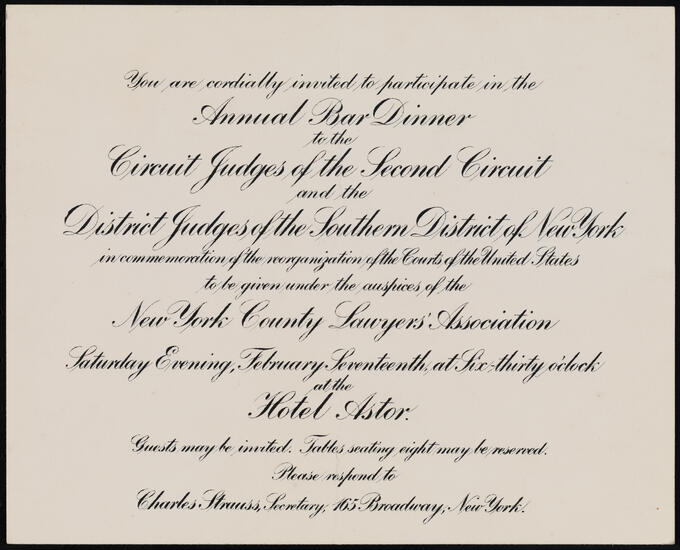 You are cordially invited to participate in the
Annual Bar Dinner
to the
Circuit Judges of the Second Circuit
and the
District Judges of the Southern District of New York
in commemoration of the reorganization of the Courts of the United States
to be given under the auspices of the
New York County Lawyers' Association
Saturday Evening, February Seventeenth, at Six-thirty o'clock
at the
Hotel Astor.
Guests may be invited. Tables seating eight may be reserved.
Please respond to
Charles Strauss, Secretary, 165 Broadway, New York.